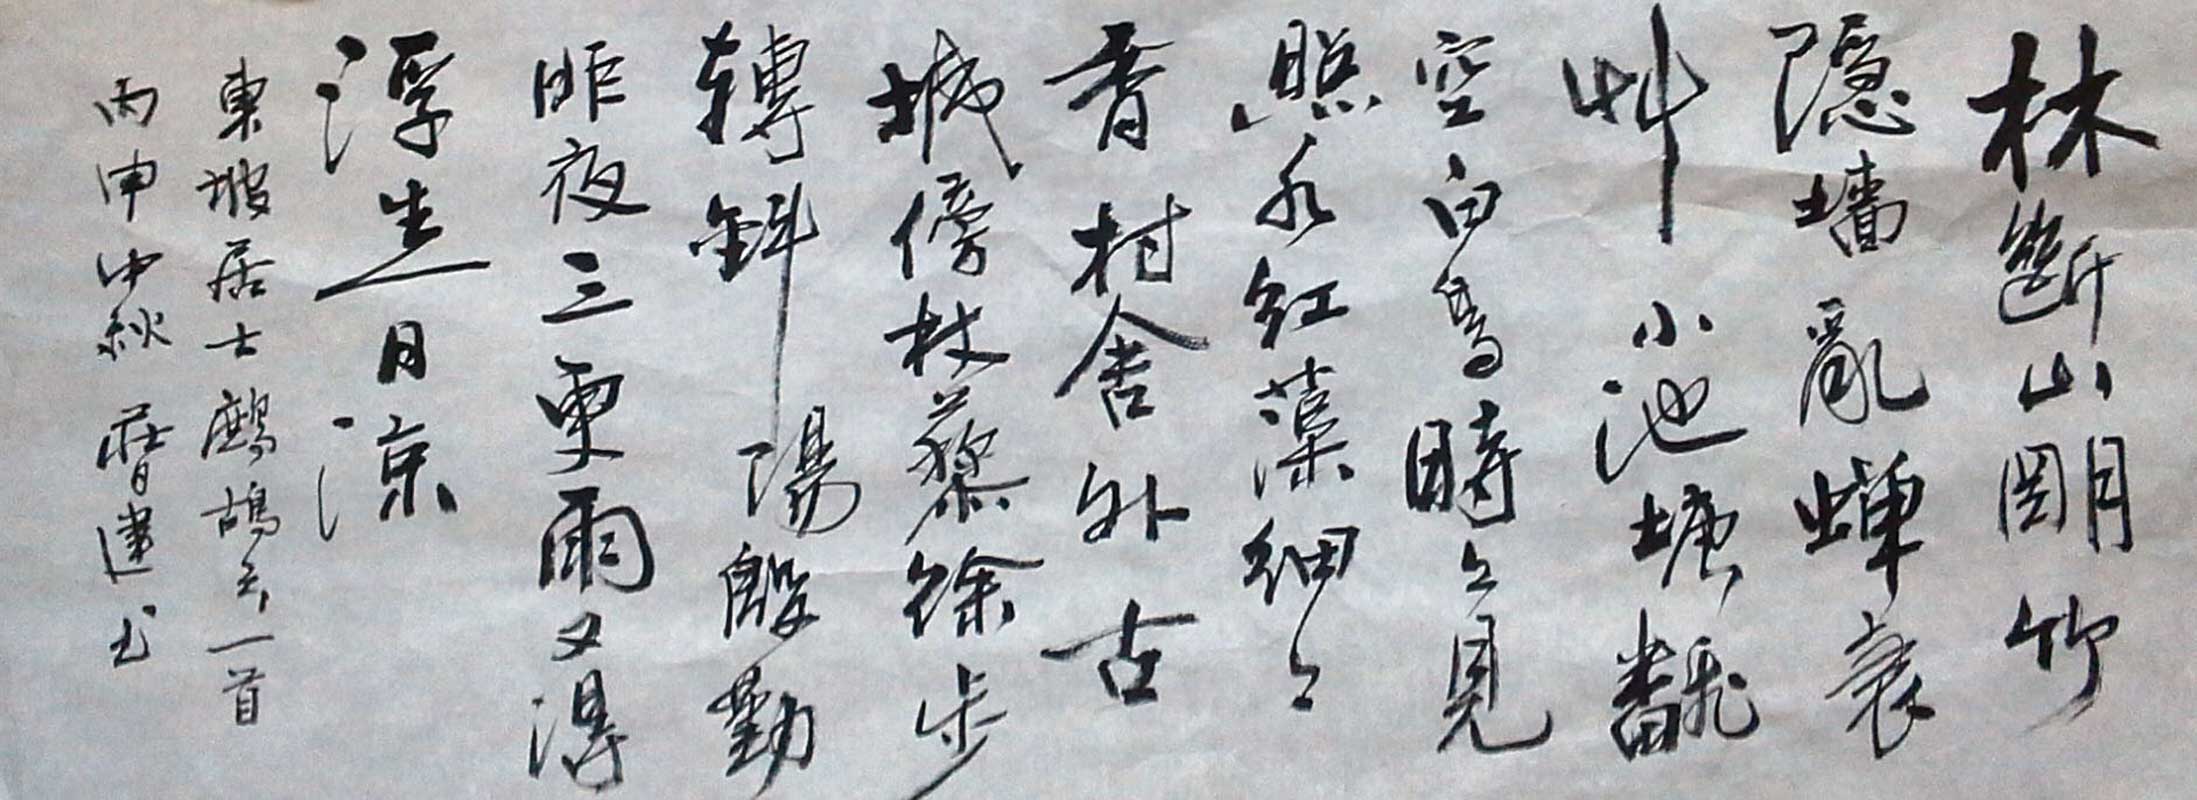 林斷山朙竹
隐墻亂蟬衰
艸小池塘飜
空白鳥時々見
照水紅蕖細々
香村舍外古
城傍杖藜徐步
轉斜陽殷勤
昨夜三更雨又得
浮生一日涼
東坡居士鷓鴣天一首
丙申中秋 建书